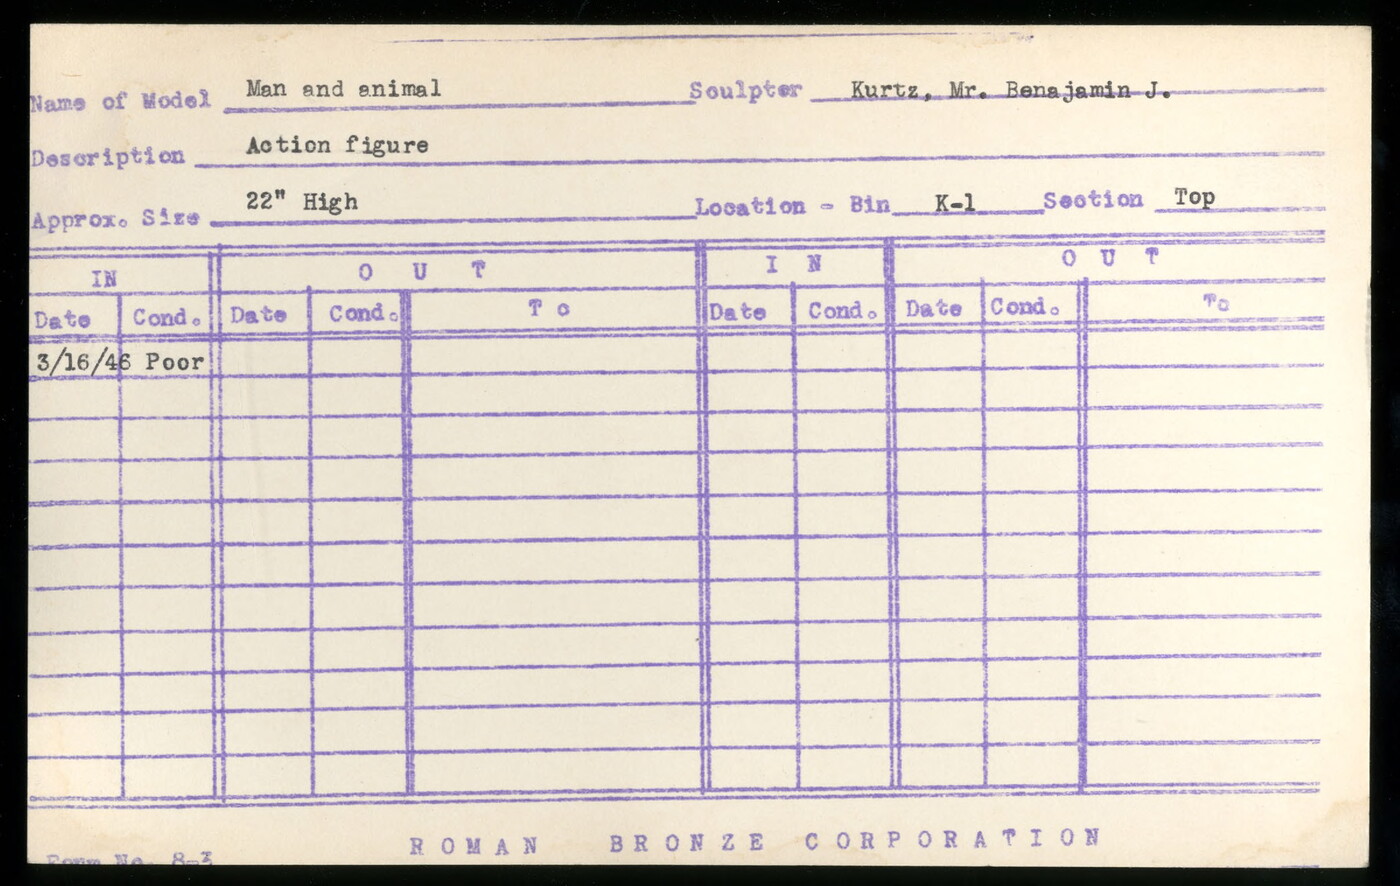 Name of Model Man and animal Sculptor Kurtz, Mr. Benajamin J.
Description Action figure
Approx. Size 22" High Location - Bin K-1 Section Top
IN OUT IN OUT
Date Cond. Date Cond. To Date Cond. Date Cond. To
3/16/46 Poor
ROMAN BRONZE CORPORATION
Form No. 8-3